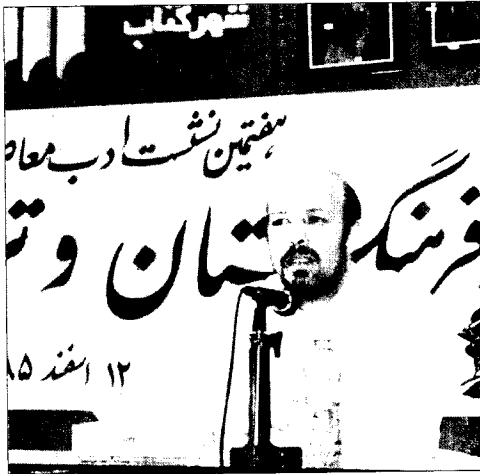 شهر کتاب
هفتمین نشست ادب معاص
فرهنگستان و
۱۲ اسفند ۸۵